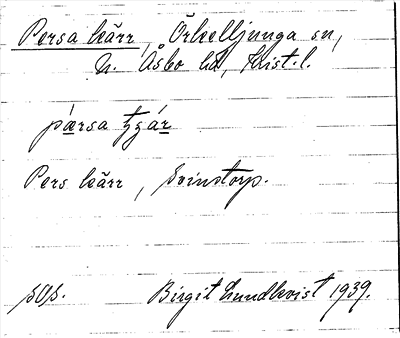 Persa kärr, Örkelljunga sn,
N. Åsbo hd, Krist. l.
pæ̀rsa tʒár
Pers kärr, Svinstorp.
sOp.
Birgit Lundkvist 1939.